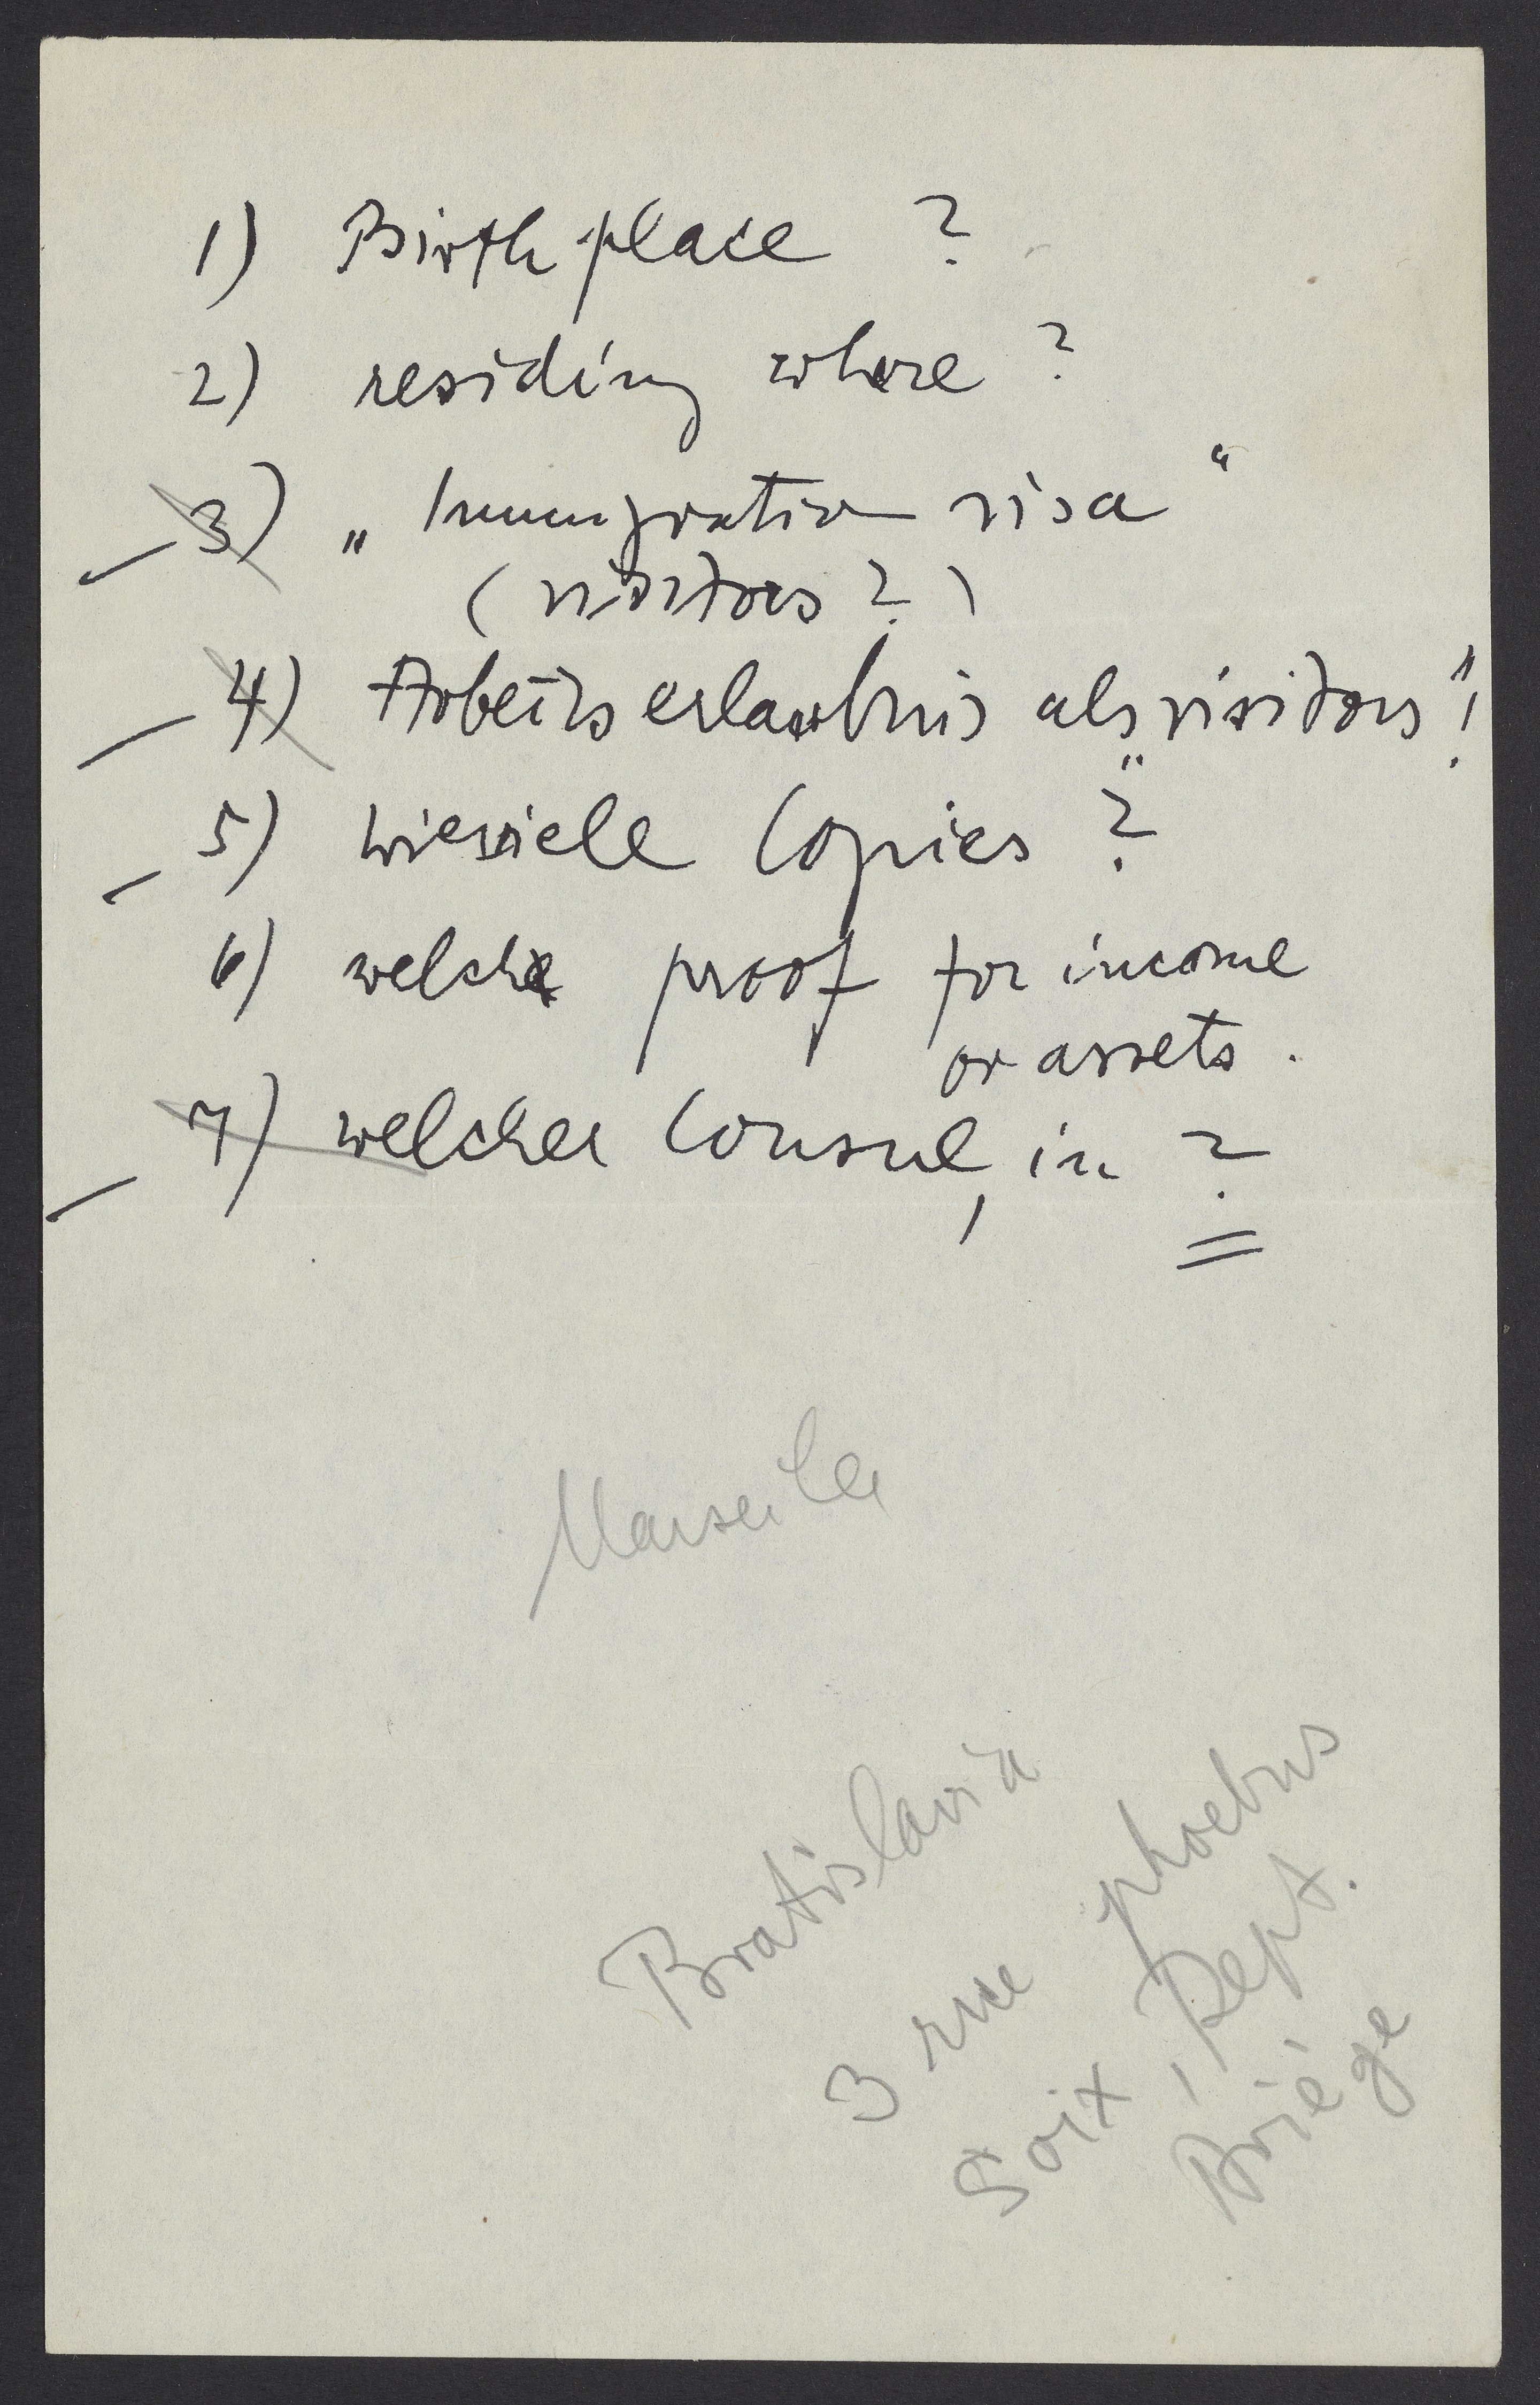 1) Birthplace ?
2) residing where ?
3) „Immigration visa“
(visitors ?)
4) Arbeitserlaubnis als „visitors“!
5) wieviele Copies ?
6) welche proof for income
or assets.
7) welcher Consul, in ?
Marseille
Bratislavia
3 rue phoebus
Foix, Dept.
Ariége